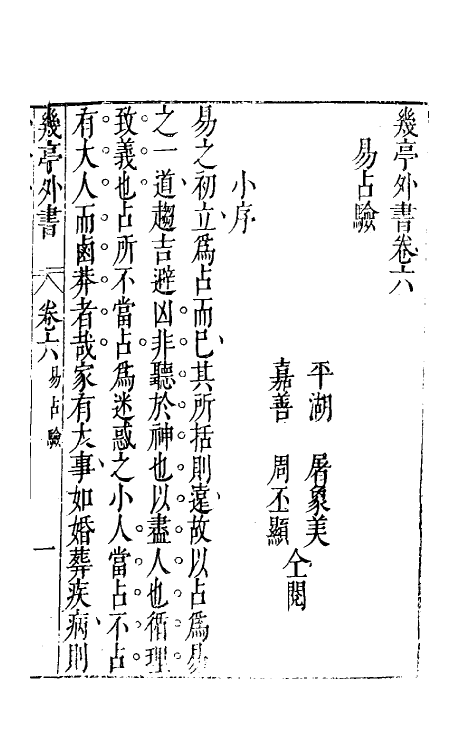 幾亭外書卷六
易占驗
平湖　屠象美
嘉善　周丕顯
仝閱
小序
易之初立爲占而已其所括則遠故以占爲易
之一道趨吉避凶非聽於神也以盡人也循理
致義也占所不當占爲迷惑之小人當占不占
有大人而鹵莽者哉家有大事如婚葬疾病則
幾亭外書　卷六　易占驗　一